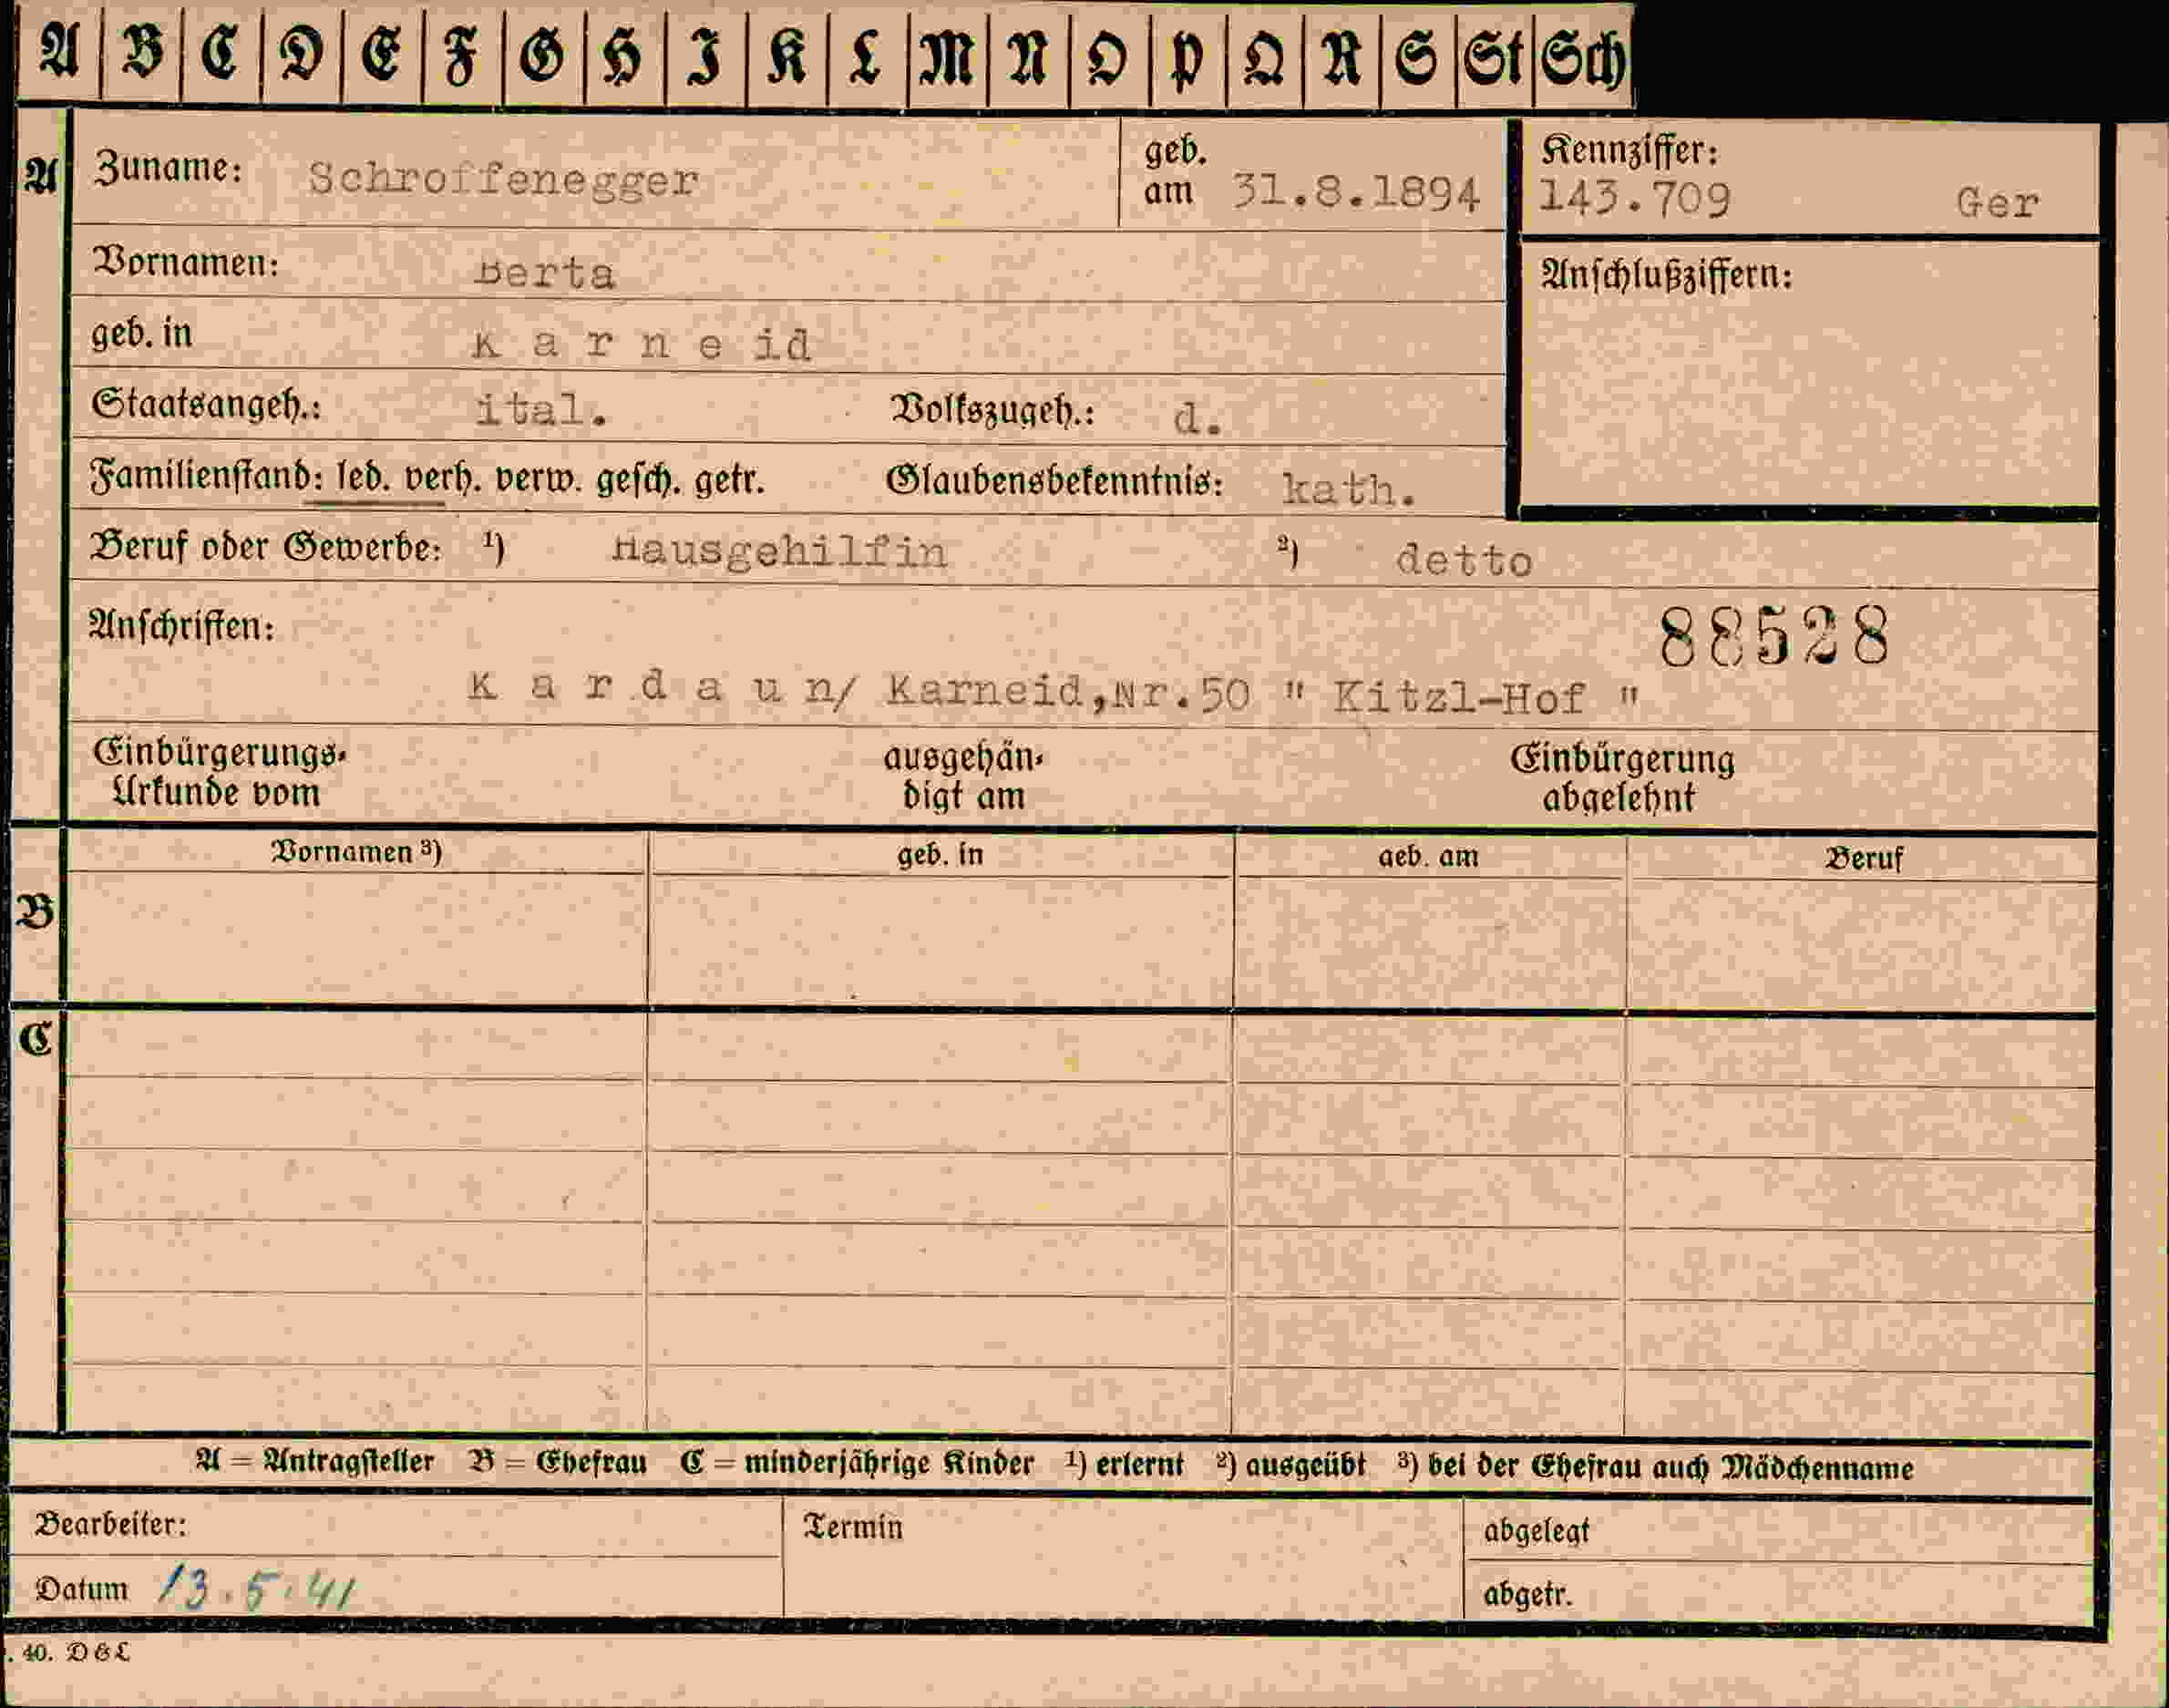 A B C D E F G H I K L M N O P Q R S St Sch
A Zuname: Schroffenegger geb. am 31.8.1894 Kennziffer: 143.709 Ger
Vornamen: Berta Anschlußziffern:
geb. in K a r n e id
Staatsangeh.: ital. Volkszugeh.: d.
Familienstand: led. verh. verw. gesch. getr. Glaubensbekenntnis: kath.
Beruf oder Gewerbe: ¹) Hausgehilfin ²) detto
Anschriften: 88528
K a r d a u n/ Karneid,Nr.50 " Kitzl-Hof "
Einbürgerungs- ausgehän- Einbürgerung
Urkunde vom digt am abgelehnt
Vornamen ³) geb. in geb. am Beruf
B
C
A = Antragsteller B = Ehefrau C = minderjährige Kinder ¹) erlernt ²) ausgeübt ³) bei der Ehefrau auch Mädchenname
Bearbeiter: Termin abgelegt
Datum 13.5.41 abgetr.
. 40. D&L